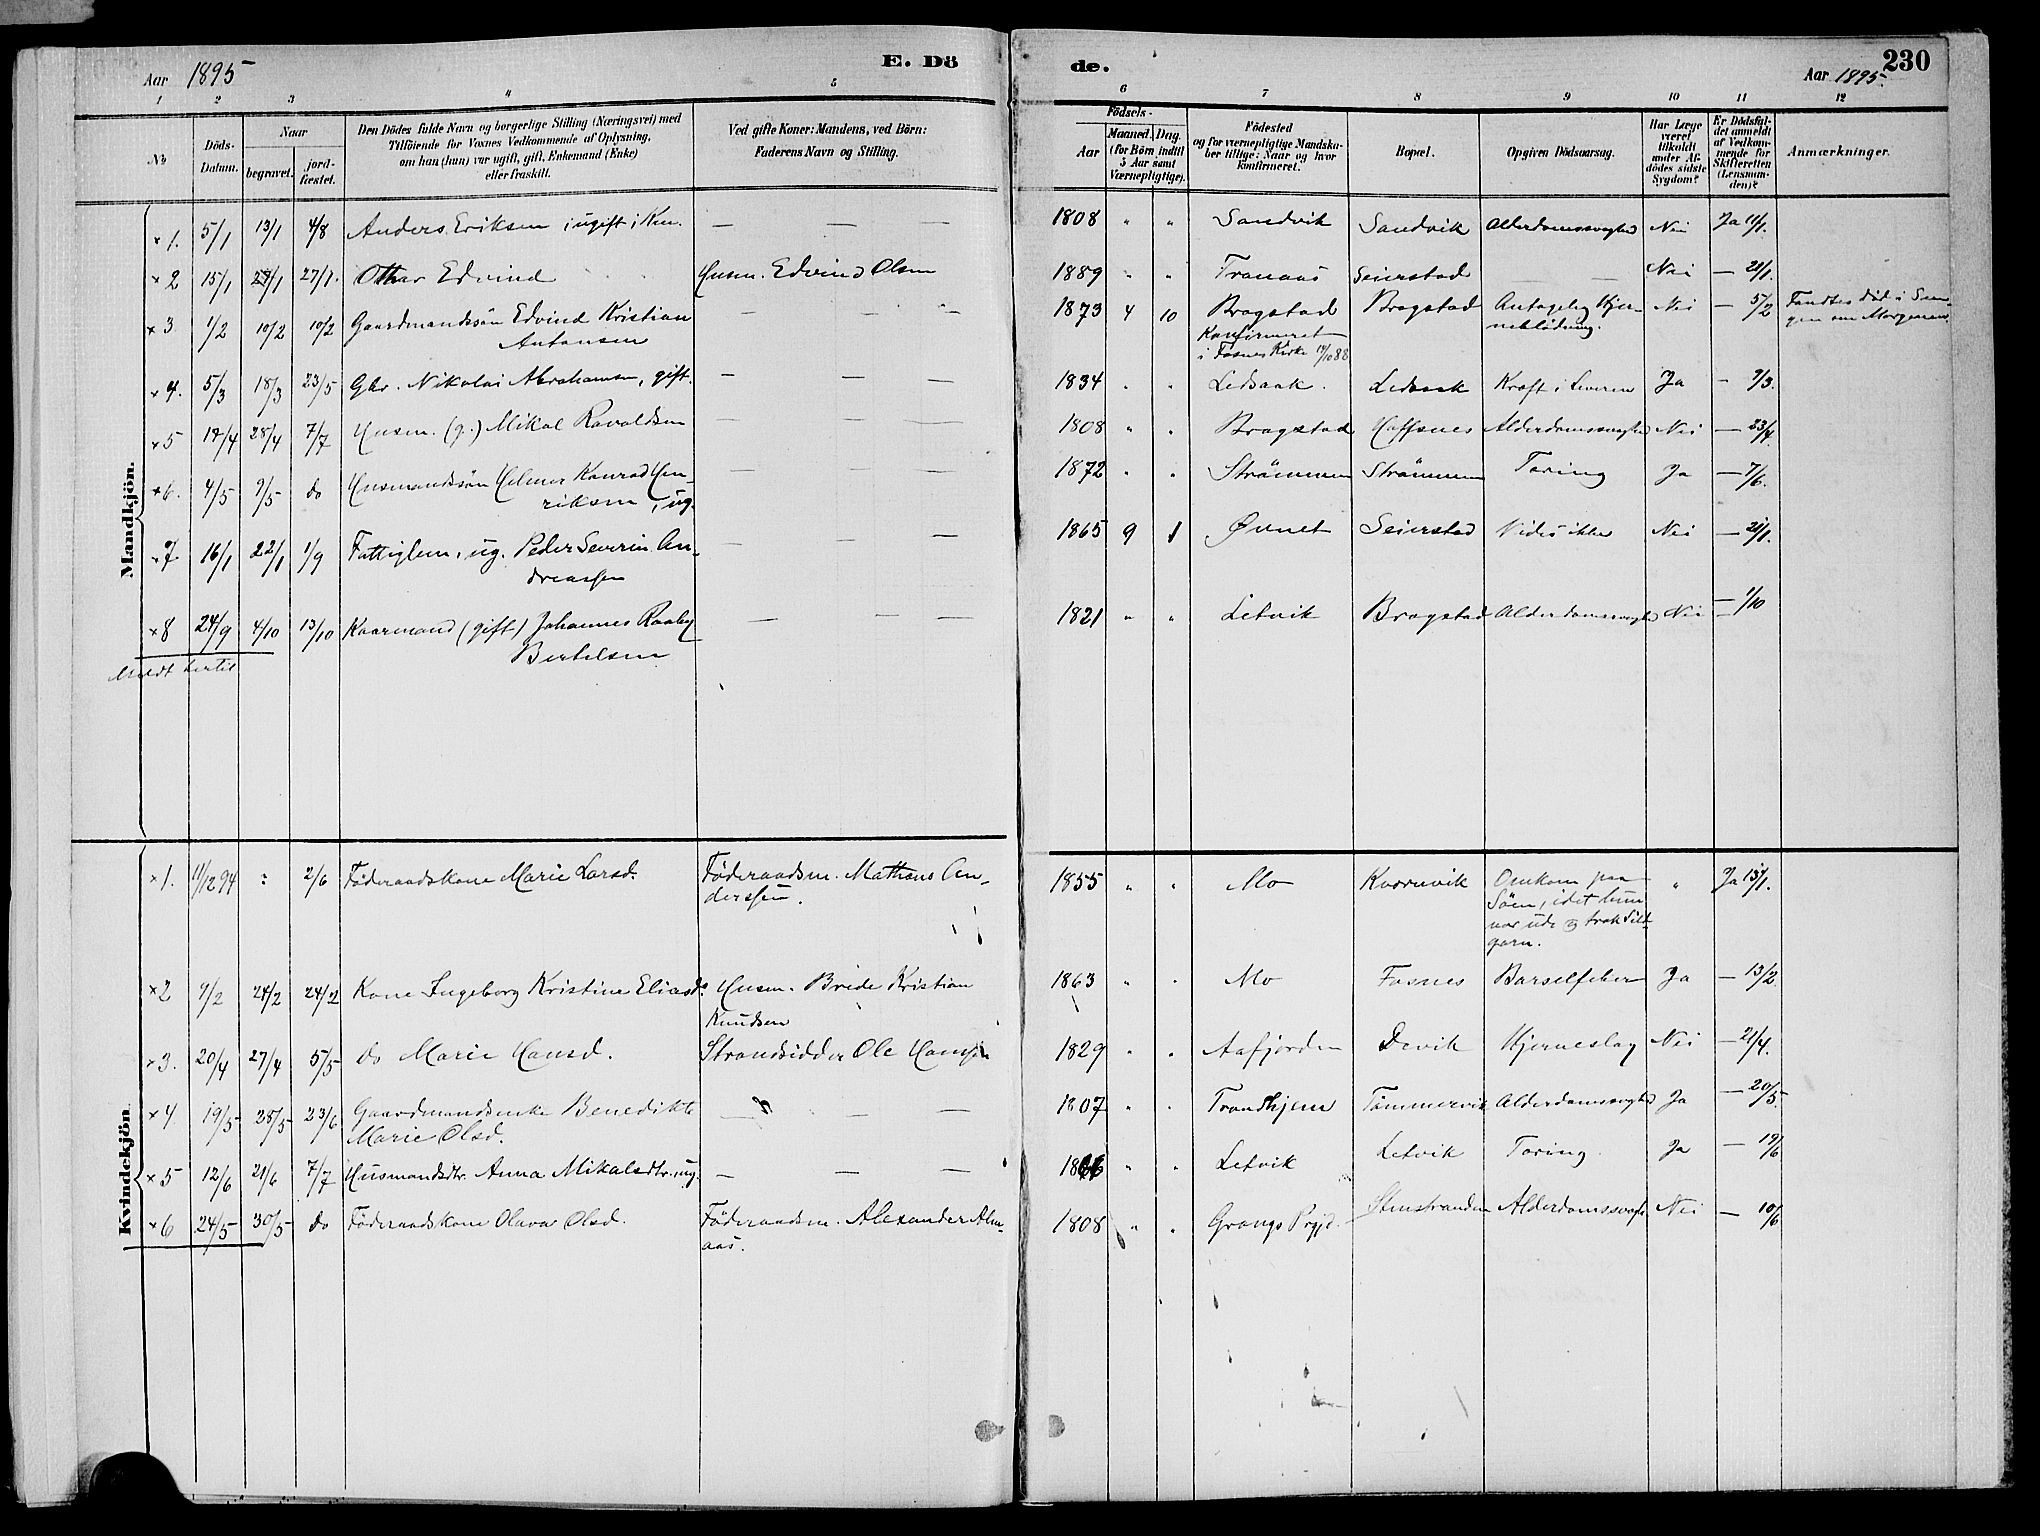 Aar 1895
E. Dö
de.
230
Aar 1895.
1 2 3 4 5 6 7 8 9 10 11 12
No
Döds-Datum.
Naar
begravet.
jord-fæstet.
Den Dödes fulde Navn og borgerlige Stilling (Næringsvei) med
Tilföiende for Voxnes Vedkommende af Oplysning,
om han (hun) var ugift, gift, Enkemand (Enke)
eller fraskilt.
Ved gifte Koner: Mandens, ved Börn:
Faderens Navn og Stilling.
Födsels-
Aar
Maaned. Dag.
(for Börn indtil
5 Aar samt
Værnepligtige).
Födested
og for værnepligtige Mandska-
ber tillige: Naar og hvor
konfirmeret.
Bopæl.
Opgiven Dödsaarsag.
Har Læge
været
tilkaldt
under Af-
dödes sidste
Sygdom?
Er Dödsfal-
det anmeldt
af Vedkom-
mende for
Skifteretten
(Lensman-
den)?
Anmærkninger.
Mandkjön.
×1. 5/1 13/1 4/8 Anders Eriksen ugift — — — 1808 " " Sandvik Sandvik Alderdomssvaghed Nei Ja 11/1.
×2 15/1 27/1. Othar Edvind Husm. Edvind Olsen 1889 " " Tranaas Seierstad — Nei — 21/1.
×3 1/2 10/2 10/2 Gaardmandssön Edvind Kristian — — — 1873 4 10 Bragstad Bragstad Antagelig Hjer- Nei — 5/2 Fandtes död i Sen-
Antonsen Konfirmeret neblödning. gen om Morgenen
i Fosnes Kirke 14/10 88
×4. 5/3 18/3 23/5 Gbr. Nikolai Abrahamsen, gift. — — — 1834 " " Ledsaak. Ledsaak Kræft i Leveren Ja — 9/3.
×5 14/4 28/4 7/7 Husm. (g.) Mikal Ravaldsen — — — 1808 " " Bragstad Hoffsnes Alderdomssvaghed Nei — 23/4.
×6. 4/5 9/5 do Husmandssön Helmer Konrad Hen- — — — 1872 " " Strömmen Strömmen Tæring Ja — 7/6.
riksen, ug.
×7 16/1 22/1 1/9 Fattiglem, ug. Peder Severin An- — — — 1865 9 1 Øvnet Seierstad Vides ikke Nei — 21/1.
dreassen
×8 24/9 4/10 13/10 Kaarmand (gift) Johannes Raaby — — — 1821 " " Letvik Bragstad Alderdomssvaghed Nei — 1/10
Bertelsen
Meldt hertil
Kvindekjön.
×1. 11/12 94 : 2/6 Föderaadskone Marie Larsd. Föderaadsm. Mathæus An- 1855 " " Mo Kvernvik Omkom paa " Ja 13/1.
derssen. Söen, idet hun
var ude og trak Sild-
garn.
×2 7/2 24/2 24/2 Kone Ingeborg Kristine Eliasd. Husm. Bride Kristian 1863 " " Mo Fosnes Barselfeber Ja — 13/2.
Knudsen
×3. 20/4 27/4 5/5 do Marie Hansd. Strandsidder Ole Hansen 1829 " " Aafjorden Devik Hjerneslag Nei — 21/4.
×4 19/5 28/5 23/6 Gaardmandsenke Benedikte — — — 1807 " " Trondhjem Tömmervik Alderdomssvaghed Ja — 20/5.
Marie Olsd.
×5 12/6 21/6 7/7 Husmandsdtr. Anna Mikalsdtr. ug. — — — " " Letvik Letvik Tæring. Ja — 19/6
×6 24/5 30/5 do Föderaadskone Olava Olsd. Föderaadsm. Alexander Alm- 1808 " " Grongs Prgjd. Stenstranden Alderdomssvagh. Nei — 10/6
aas.